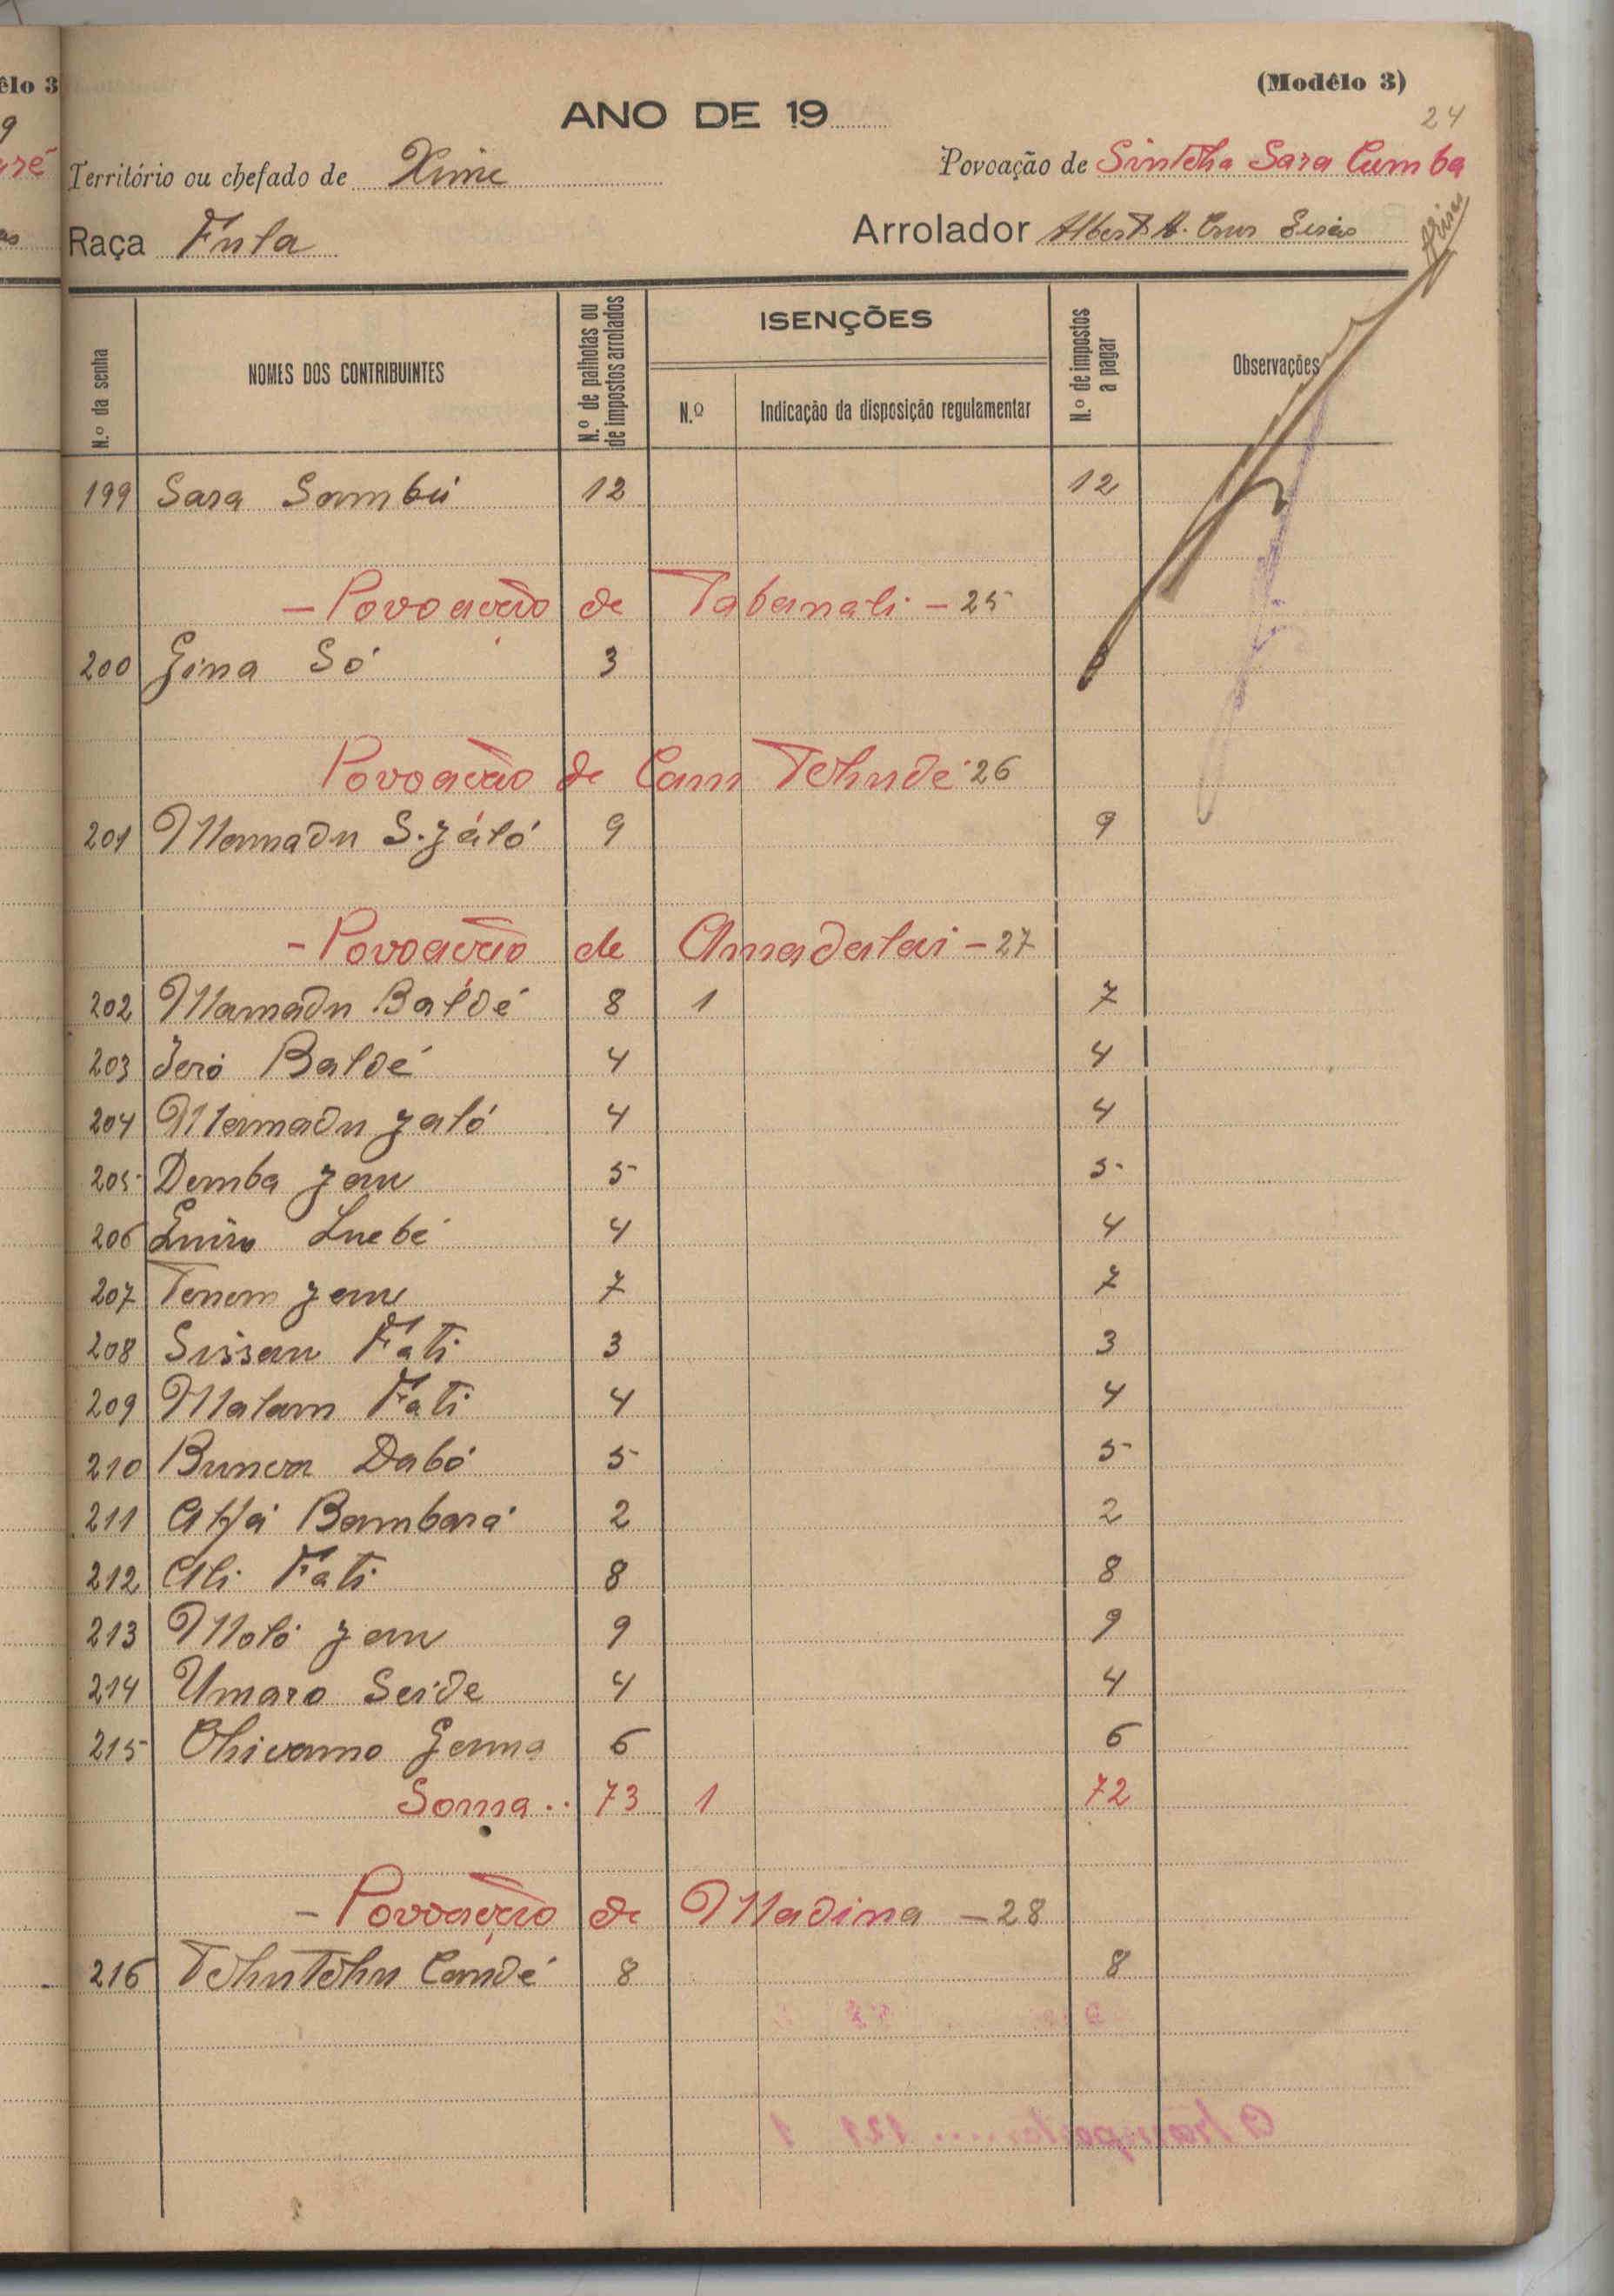 élo 3
(Modêlo 3)
9
ANO DE 19
24
aré
Território ou chefado de Xime
Povoação de Sintcha Sara Cumba
Raça Fula
Arrolador Albert A. Cruz
N.º da senha
NOMES DOS CONTRIBUINTES
N.º de palhotas ou de impostos arrolados
ISENÇÕES
N.º
Indicação da disposição regulamentar
N.º de impostos a pagar
Observações
199 Sara Sambú 12 12
- Povoação de Tabanali - 25
200 Gina Só 3
Povoação de Cam Tchudé 26
201 Mamadu S. Jáló 9 9
- Povoação de Amadalai - 27
202 Mamadu Baldé 8 1 7
203 Jeró Baldé 4 4
204 Mamadu Jaló 4 4
205 Demba Jau 5 5
206 Luebé 4 4
207 Tenem Jau 7 7
208 Sissau Fati 3 3
209 Malam Fati 4 4
210 Bunca Dabó 5 5
211 Alfá Bambará 2 2
212 Ali Fati 8 8
213 Moló Jau 9 9
214 Umaro Seide 4 4
215 Chivamo Gama 6 6
Soma .. 73 1 72
- Povoação de Madina - 28
216 Tchutchu Candé 8 8